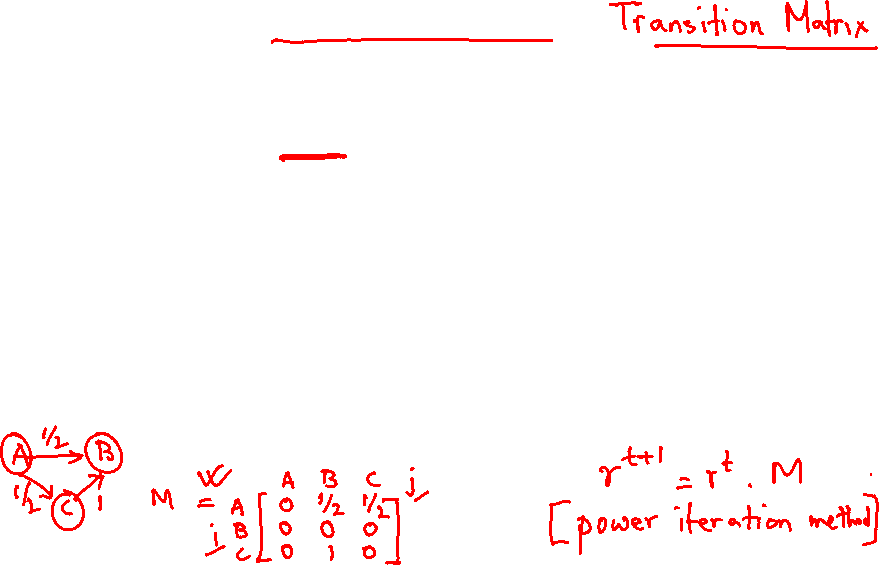 Transition Matrix
A 1/2 B
1/2 C 1
M = W
A B C j
A [ 0 1/2 1/2 ]
i B [ 0 0 0 ]
C [ 0 1 0 ]
r^{t+1} = r^t . M
[power iteration method]